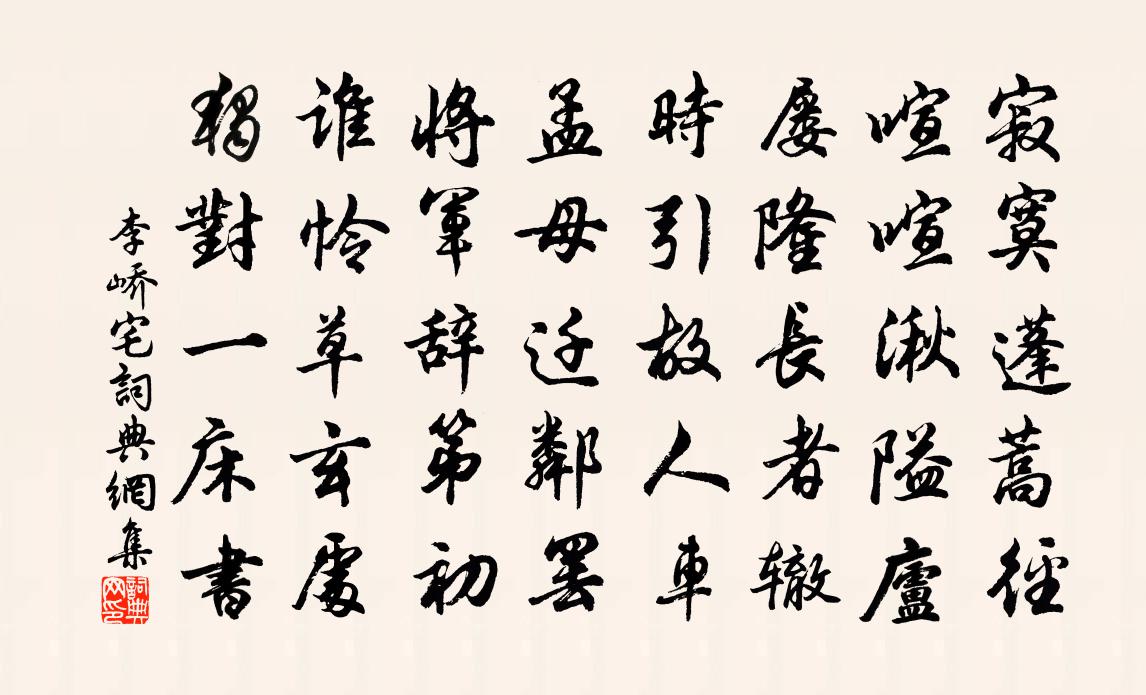 寂寞蓬蒿徑
喧喧湫隘廬
屡隆長者辙
時引故人車
孟母迁鄰罢
將軍辞第初
谁怜草玄處
獨對一床書
李嶠宅詞典網集
詞典网印